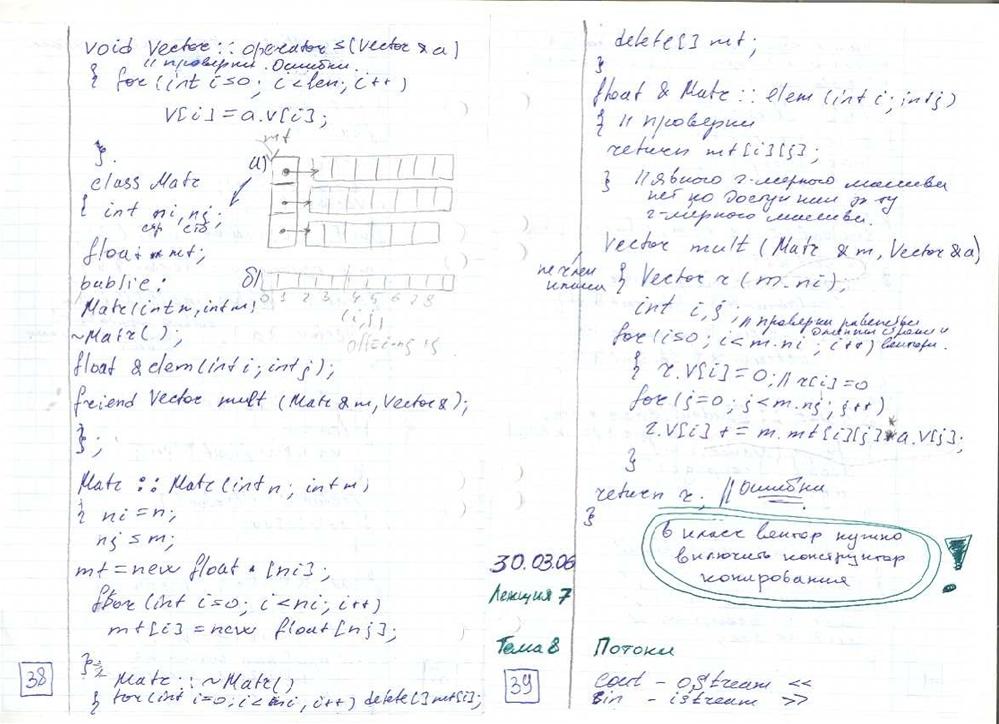 void Vector:: operator=(Vector & a)
{ // проверки. Ошибки.
for(int i=0; i<len; i++)
v[i] = a.v[i];
}.
mt
а)
class Matr
{ int ni, nj;
стр стб
float * mt;
public:
б)
0 1 2 3 4 5 6 7 8
Matr(int n, int m)
(i,j)
~Matr();
off=i*nj+j
float & elem(int i; int j);
friend Vector mult (Matr & m, Vector &);
};
Matr :: Matr(int n; int m)
{ ni = n;
nj = m;
mt = new float * [ni];
for(int i=0; i<ni, i++)
mt[i] = new float[nj];
}
Matr :: ~Matr()
{ for(int i=0; i<ni, i++) delete[] mt[i];
38
delete[] mt;
}
float & Matr :: elem (int i; int j)
{ // проверки
return mt[i][j];
} // явного 2-мерного массива
нет но доступ как к
2-мерного массива.
Vector mult (Matr & m, Vector & a)
не член
класса
{ Vector r (m.ni);
int i, j, // проверки равенства
длины строки и
for(i=0; i<m.ni; i++) вектора.
{ r.v[i] = 0; // r[i]=0
for(j=0; j<m.nj; j++)
r.v[i] += m.mt[i][j]*a.v[j];
}
return r. // Ошибки
}
В класс вектор нужно
включить конструктор
копирования
!
30.03.06
Лекция 7
Тема 8 Потоки
39
cout - ostream <<
cin - istream >>